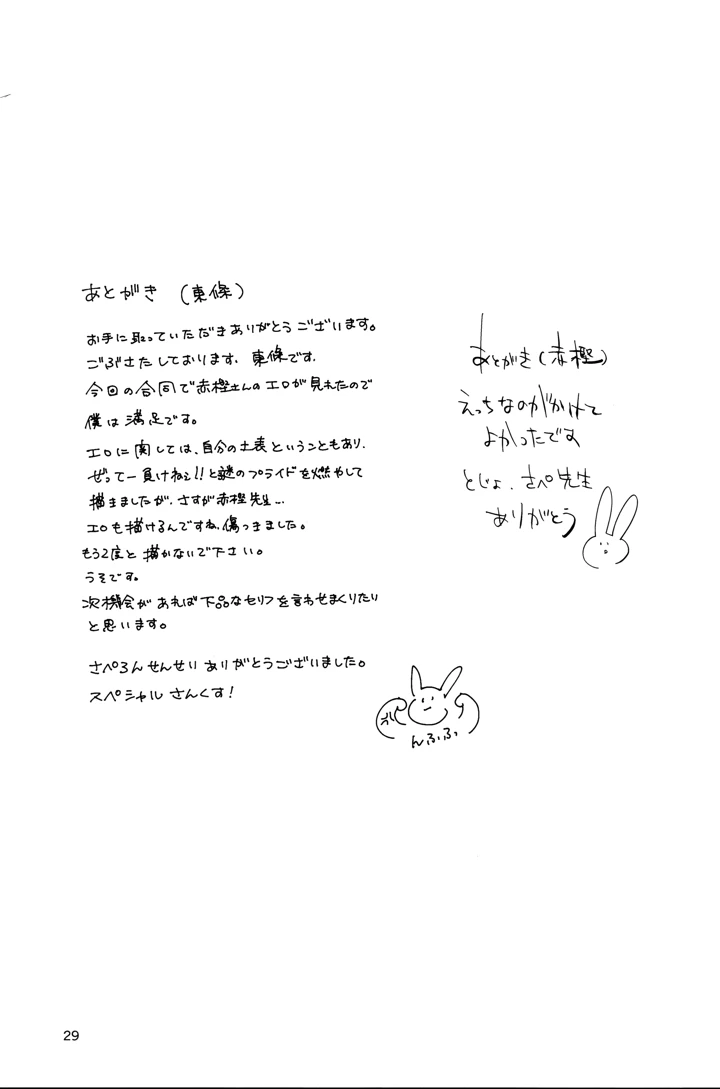 あとがき (東條)
お手に取っていただきありがとうございます。
ごぶさたしております。東條です。
今回の合同で赤樫さんのエロが見れたので
僕は満足です。
エロに関しては、自分の土表ということもあり、
ぜってー負けねェ!!と謎のプライドを燃やして
描きましたが、さすが赤樫先生…
エロも描けるんですね、傷つきました。
もう2度と描かないで下さい。
うそです。
次機会があれば下品なセリフを言わせまくりたい
と思います。
さぺろんせんせいありがとうございました。
スペシャルさんくす!
んふふっ
あとがき(赤樫)
えっちなのがかけて
よかったです
とじょ、さぺ先生
ありがとう
29